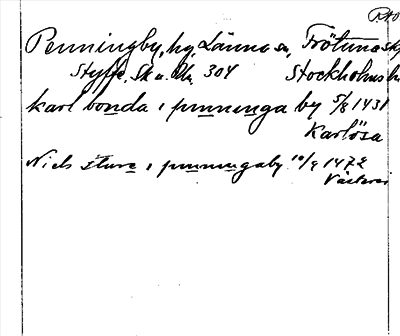 RAO
Penningby, hg, Länna sn, Frötuna sk
Styffe, Sk u. Un. 304 Stockholms l
karl bonda i pinninga by 5/8 1431
Karlösa
Niels sture i pinningaby 10/9 1472
Västerås